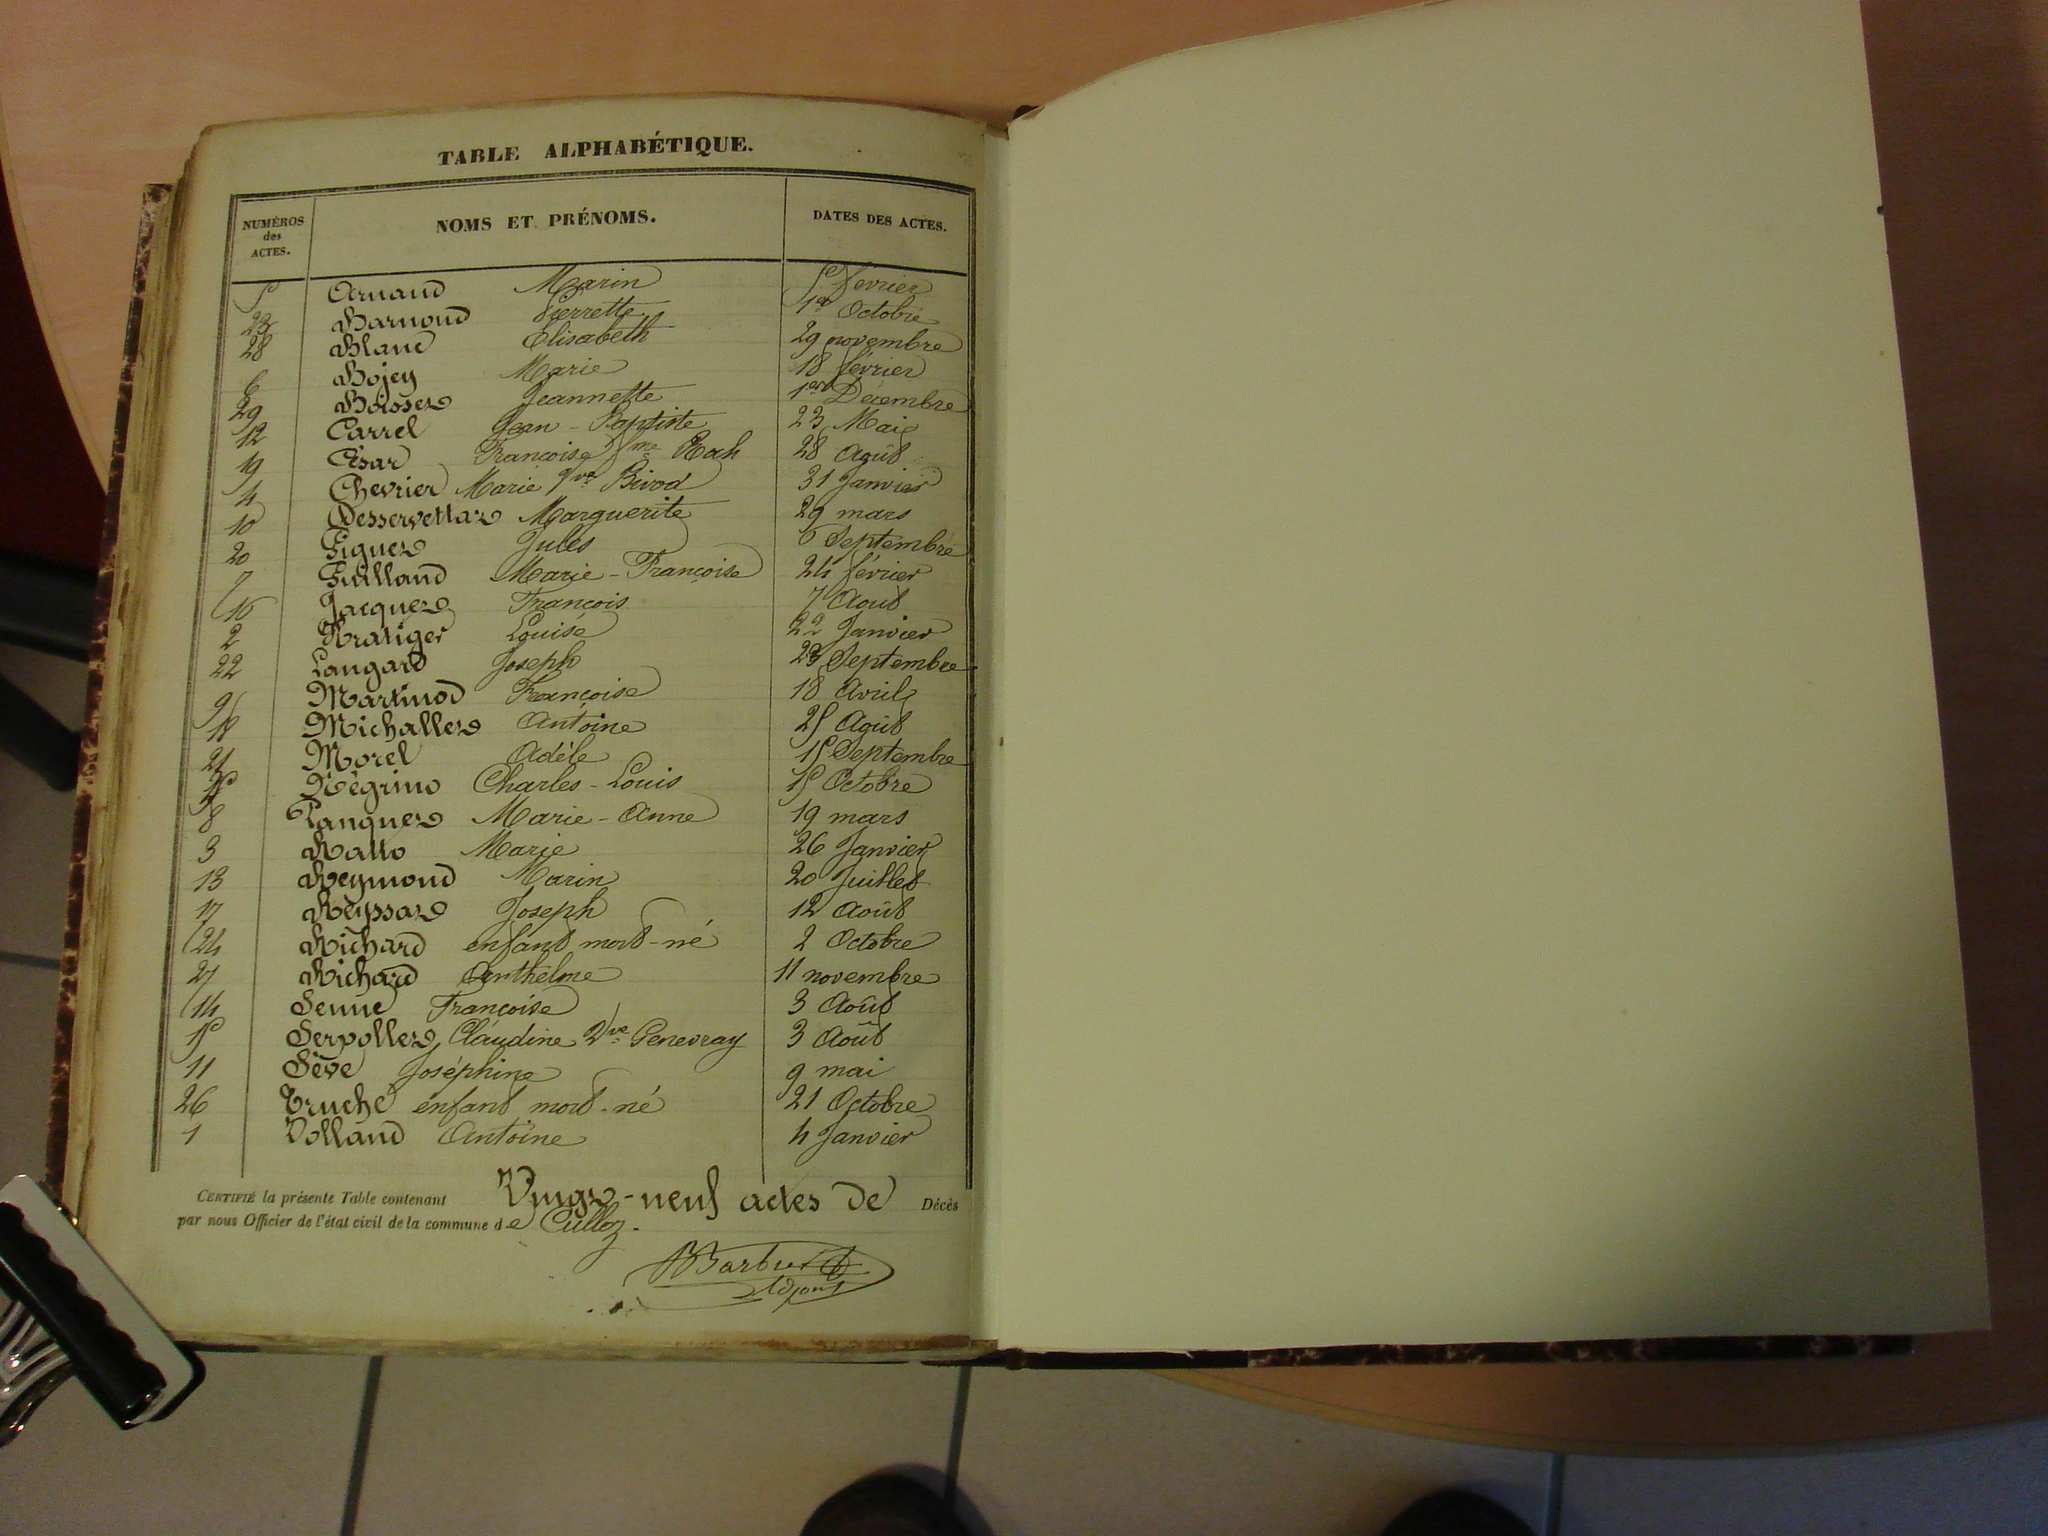 TABLE ALPHABÉTIQUE.
NUMÉROS des ACTES. NOMS ET PRÉNOMS. DATES DES ACTES.
5 Arnaud Marin 5 février
23 Barnoud Pierrette 1er Octobre
28 Blanc Elisabeth 29 novembre
6 Bojey Marie 18 février
29 Boisset Jeannette 1er Décembre
12 Carrel Jean-Baptiste 23 Mai
19 César Françoise fme 28 Août
4 Chevrier Marie Vve Bivod 31 Janvier
10 Desservettaz Marguerite 29 mars
20 Figuet Jules 6 Septembre
7 Fulliand Marie-Françoise 24 février
16 Jacquet François 7 Août
2 Kratiger Louise 22 Janvier
22 Langard Joseph Septembre
9 Martinod Françoise 18 Avril
18 Michallet Antoine 25 Août
21 Morel Adèle 15 Septembre
Négrino Charles-Louis 15 Octobre
8 Panquet Marie-Anne 19 mars
3 Ratto Marie 26 Janvier
13 Reymond Marin 20 Juillet
17 Reyssat Joseph 12 Août
24 Richard enfant mort-né 2 Octobre
27 Richard Anthelme 11 novembre
14 Senne Françoise 3 Août
15 Serpollet Claudine Vve Genevray 3 Août
11 Sève Joséphine 9 mai
26 Truche enfant mort-né 21 Octobre
1 Volland Antoine 4 Janvier
CERTIFIÉ la présente Table contenant Vingt-neuf actes de Décès
par nous Officier de l'état civil de la commune de Culloz.
Barbier
Adjoint